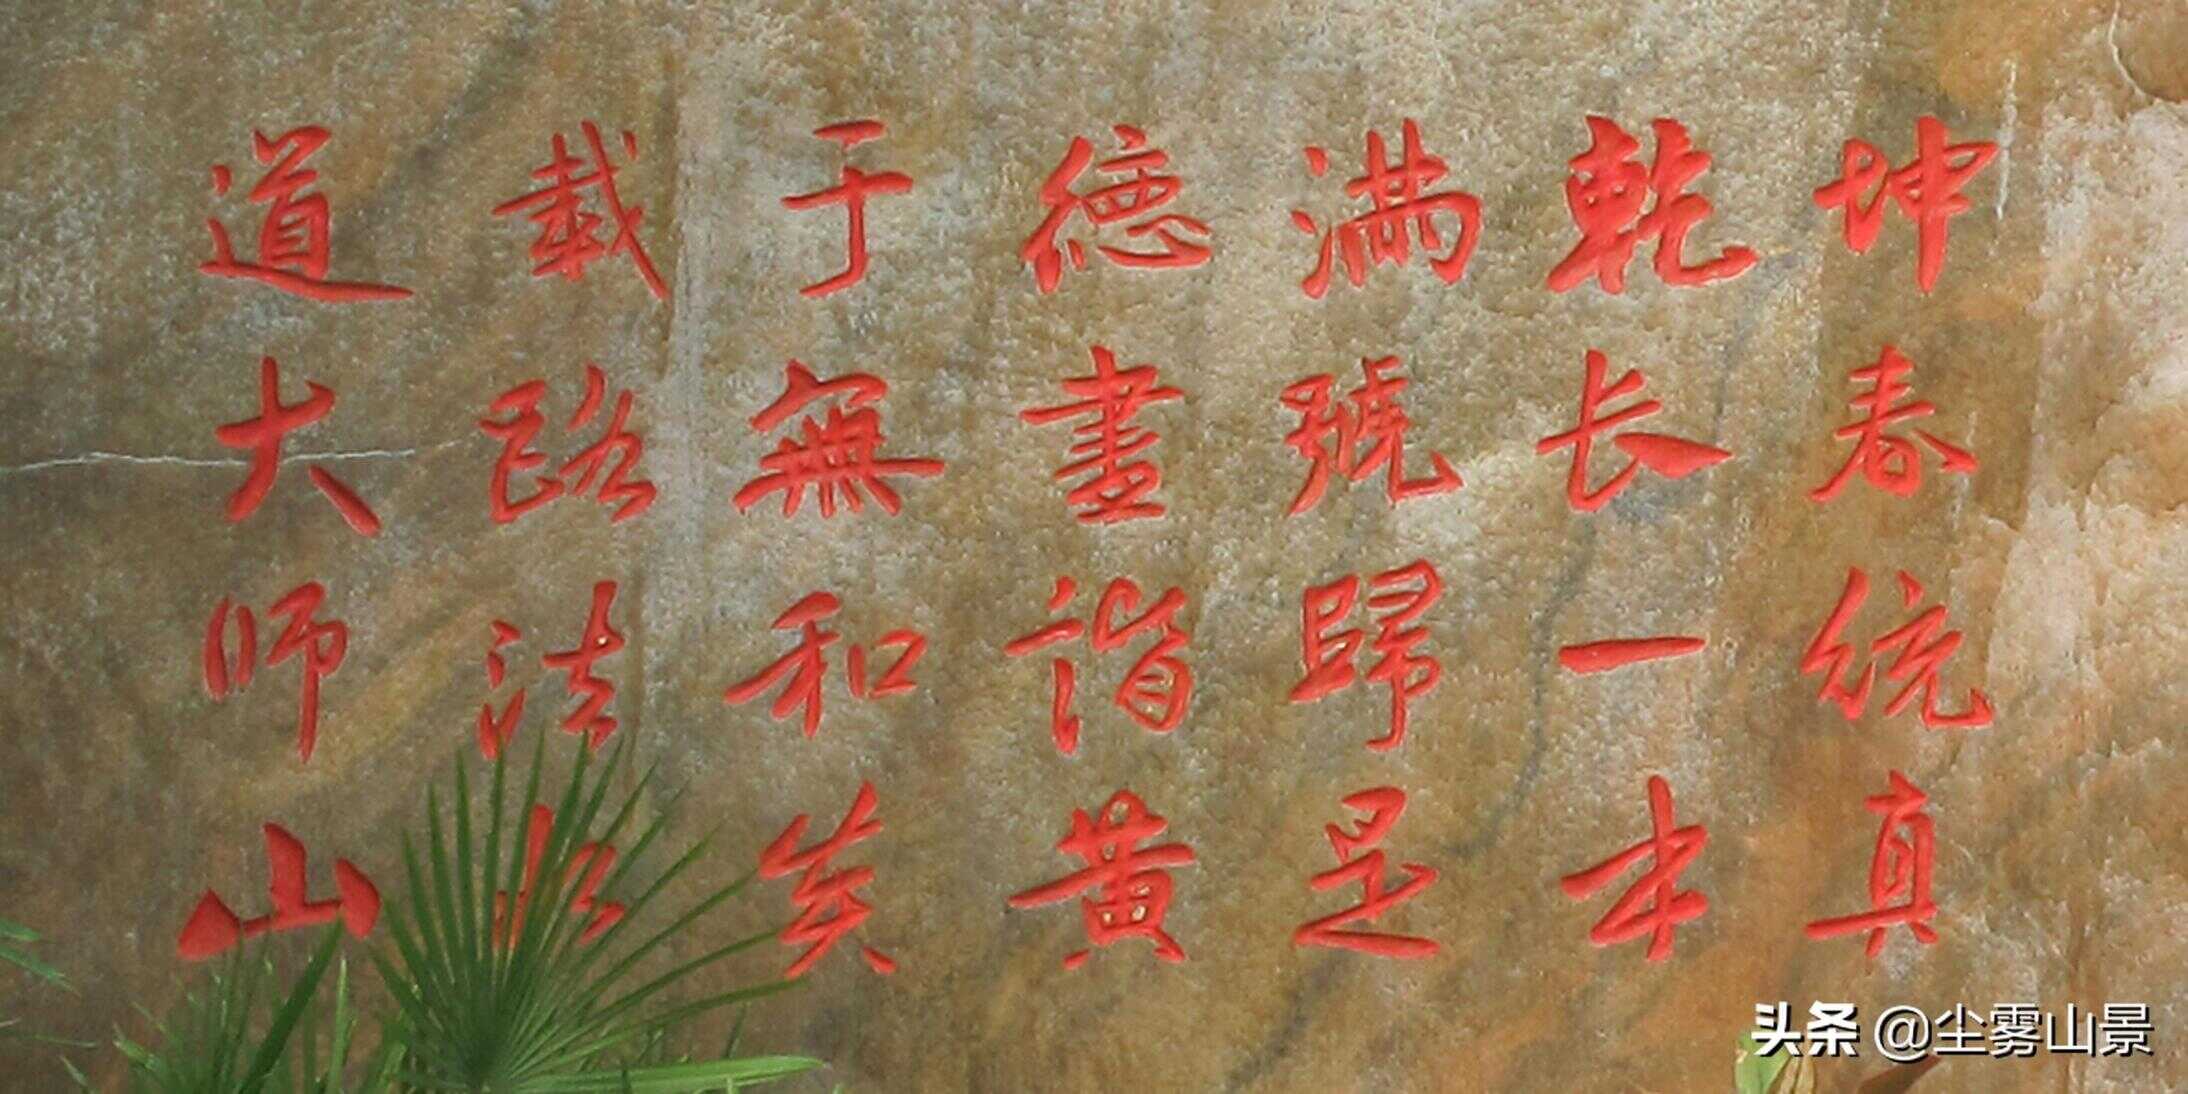 道載于德满乾坤
大路無盡號长春
师法和谐歸一统
山水炎黄是本真
头条 @尘雾山景